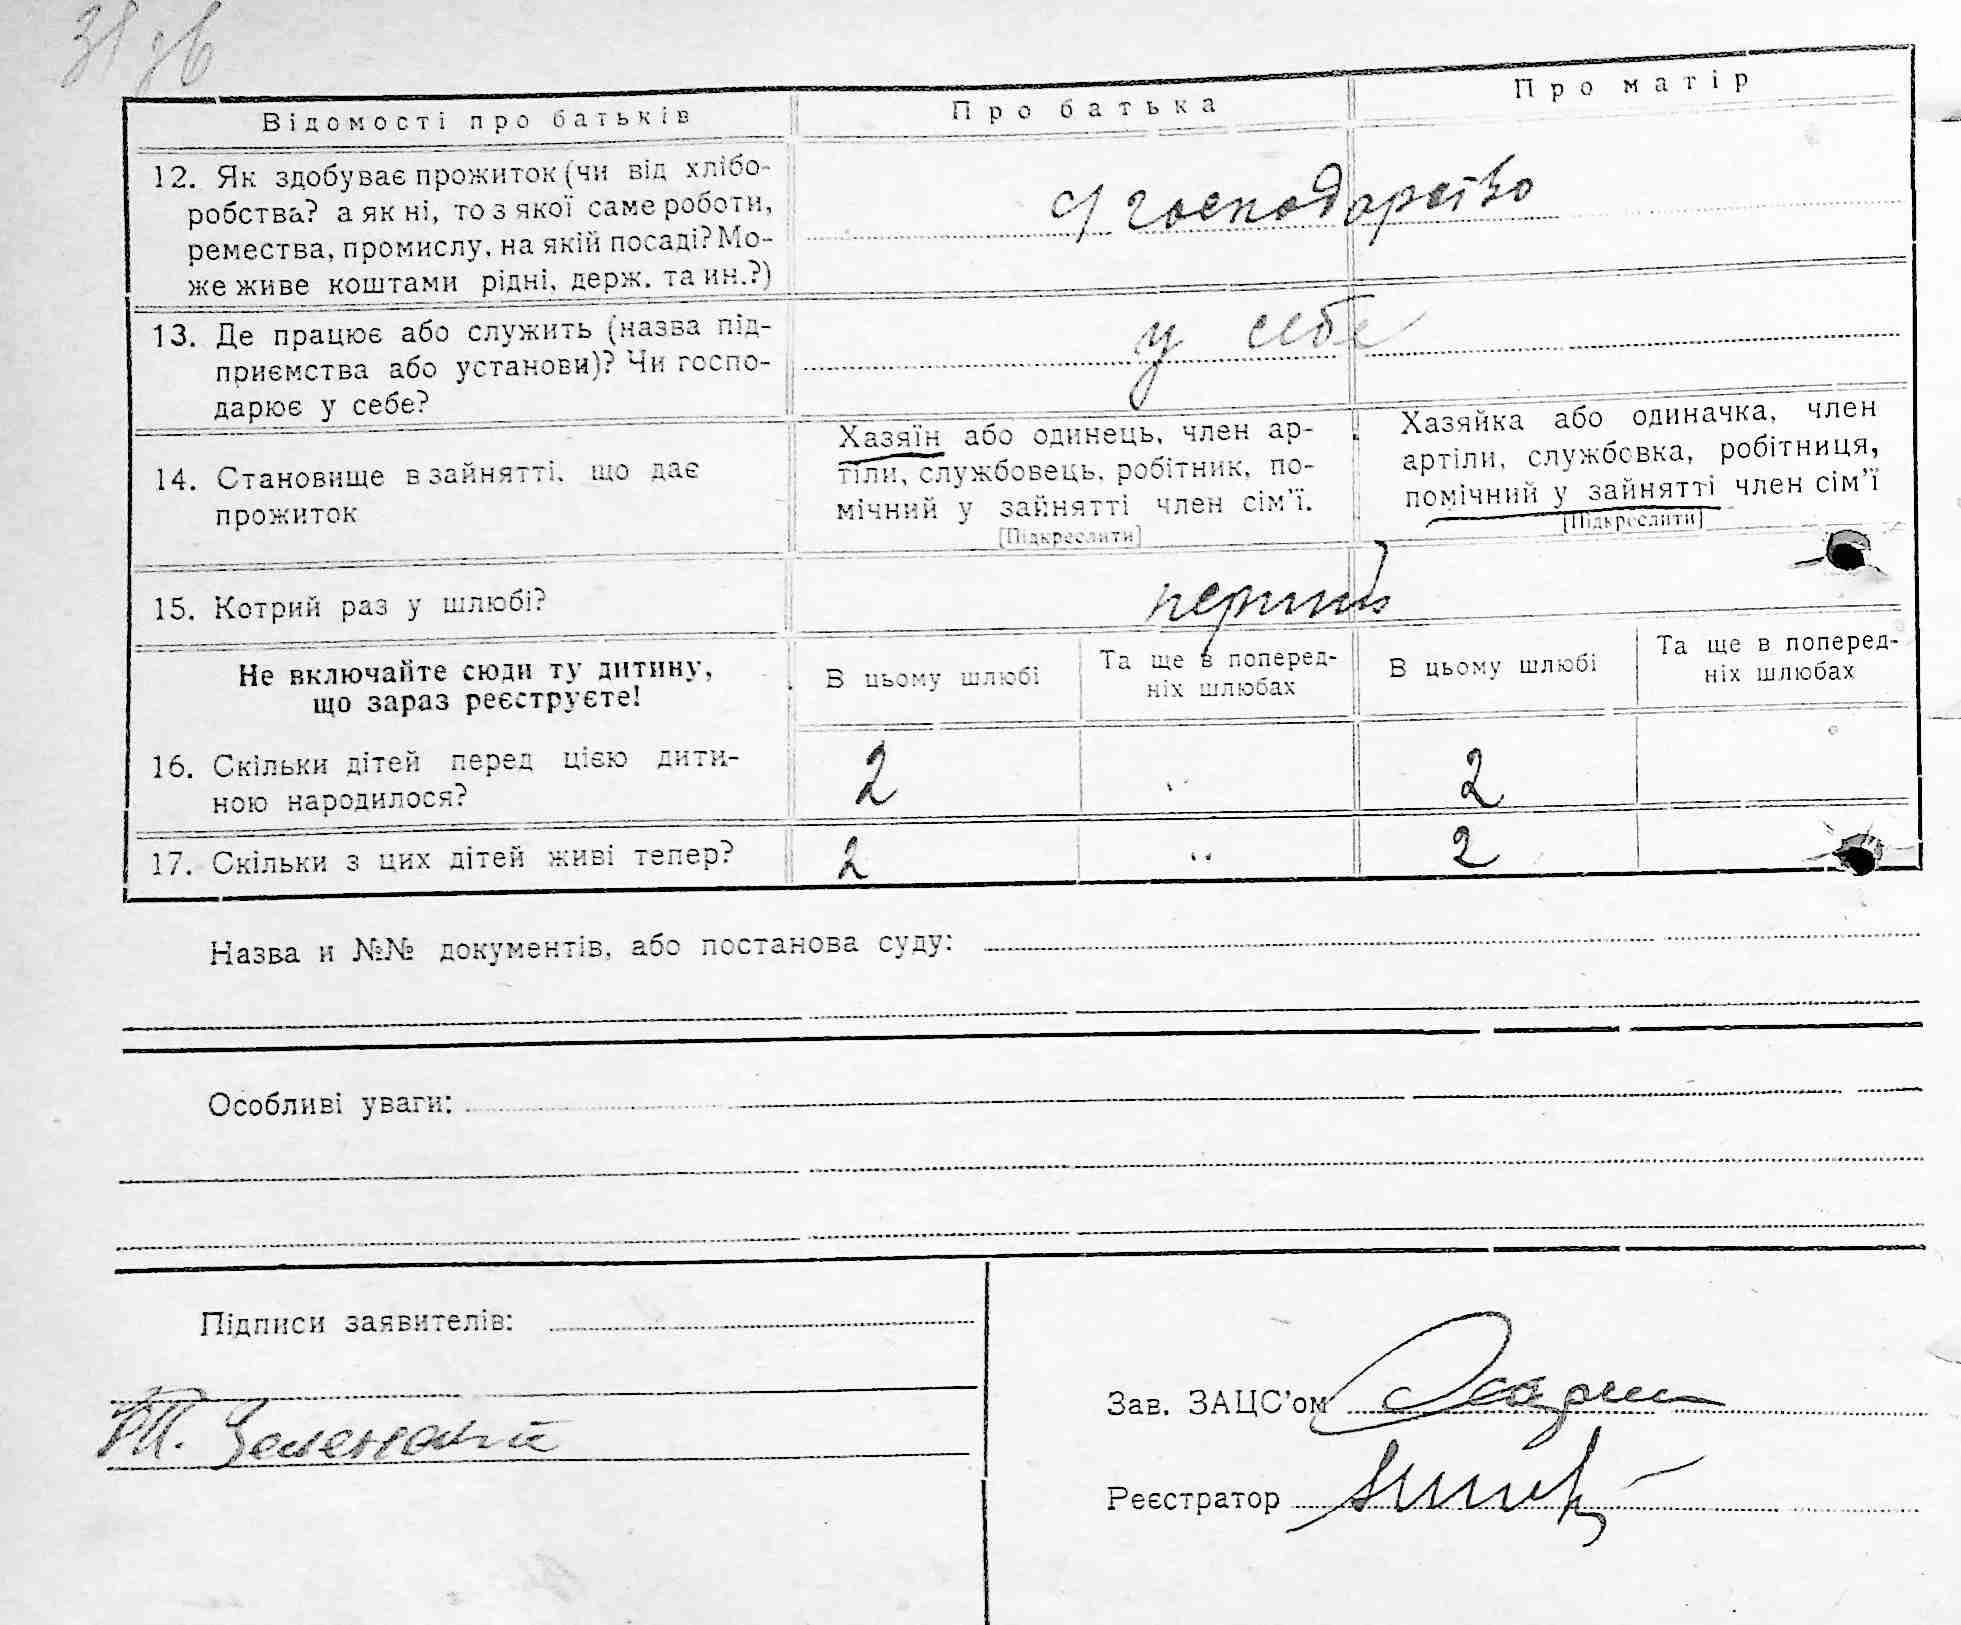 31 зв
Відомості про батьків
Про батька
Про матір
12. Як здобуває прожиток (чи від хлібо-
робства? а як ні, то з якої саме роботи,
ремества, промислу, на якій посаді? Мо-
же живе коштами рідні, держ. та ин.?)
с/господарство
13. Де працює або служить (назва під-
приємства або установи)? Чи госпо-
дарює у себе?
у себе
14. Становище в зайнятті, що дає
прожиток
Хазяїн або одинець, член ар-
тіли, службовець, робітник, по-
мічний у зайнятті член сім'ї.
[Підкреслити]
Хазяйка або одиначка, член
артіли, службовка, робітниця,
помічний у зайнятті член сім'ї
[Підкреслити]
15. Котрий раз у шлюбі?
перший
Не включайте сюди ту дитину,
що зараз реєструєте!
В цьому шлюбі
Та ще в поперед-
ніх шлюбах
В цьому шлюбі
Та ще в поперед-
ніх шлюбах
16. Скільки дітей перед цією дити-
ною народилося?
2
"
2
17. Скільки з цих дітей живі тепер?
2
"
2
Назва и №№ документів, або постанова суду:
Особливі уваги:
Підписи заявителів:
Зав. ЗАЦС'ом
Реєстратор